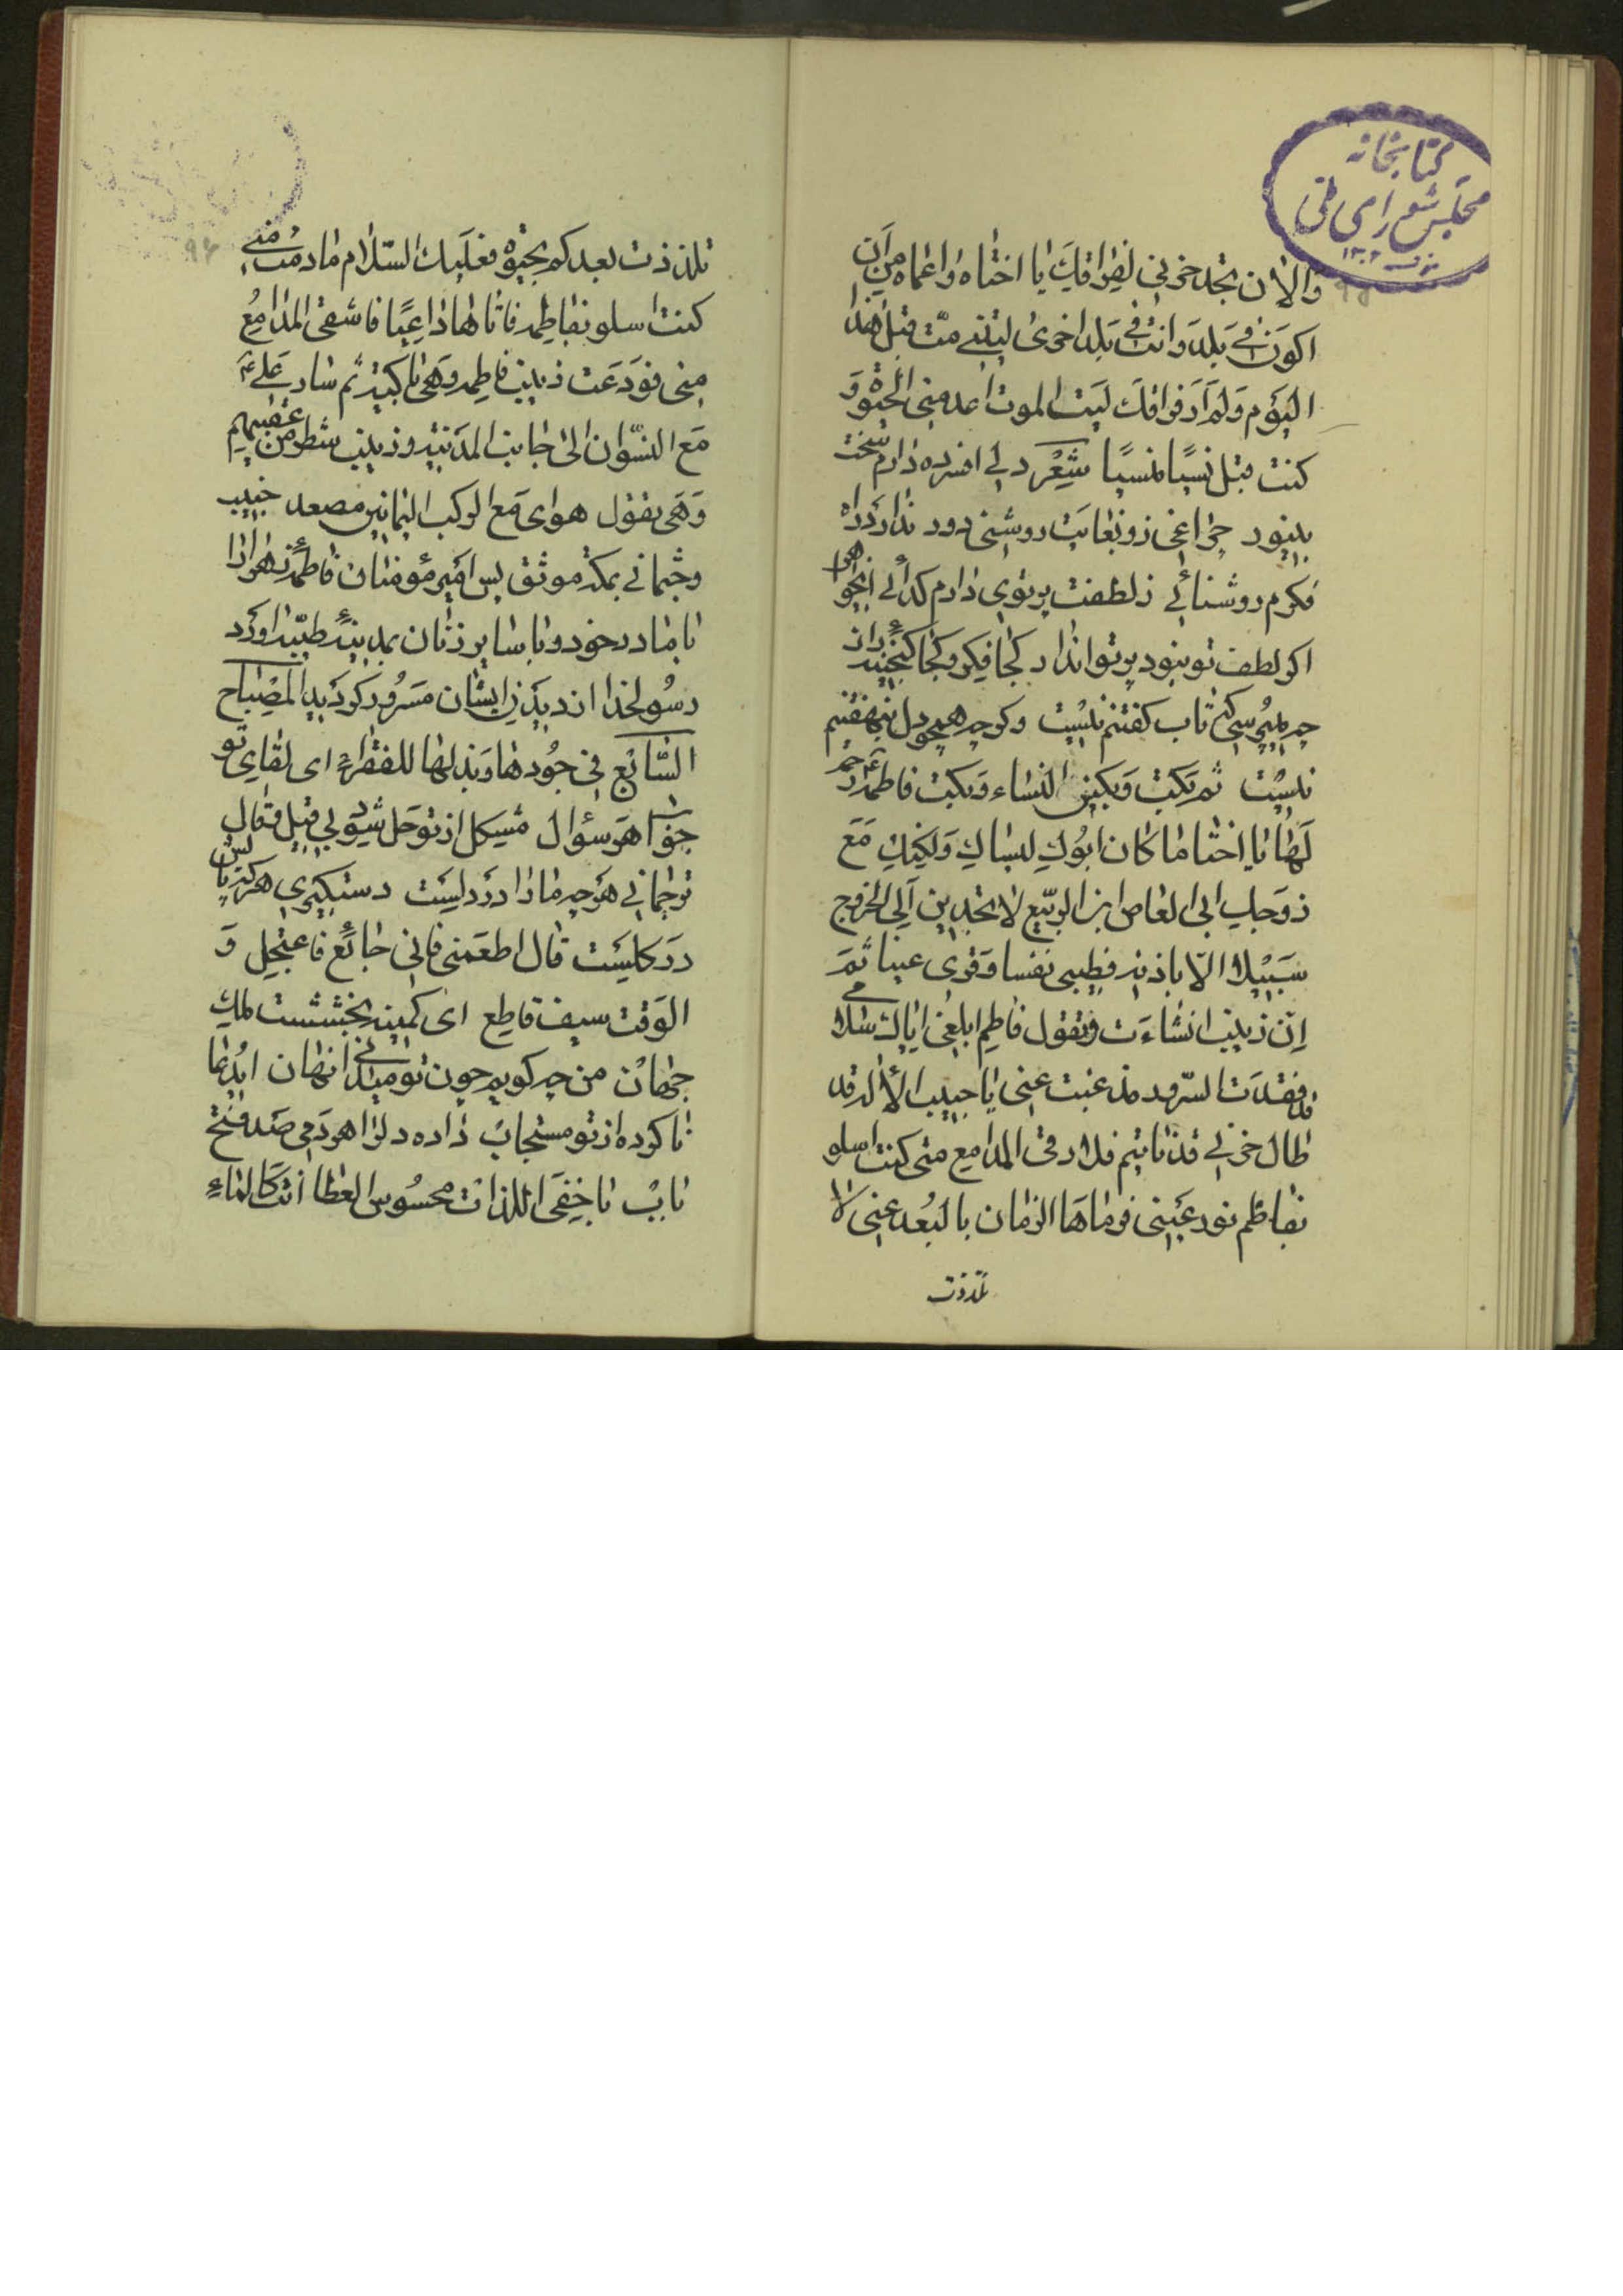 کتابخانه
مجلس شورای ملی
والان تجد حزنی لفراقک یا اختاه واغماه من ان
اکون فی بلد وانت فی بلد اخری لیتنی متّ قبل هذا
الیوم ولم ار فراقک لیت الموت اعدمنی الحیوة و
کنت قبل نسیًا منسیًا شعر دلی افسرده دارم سخت
بینور چراغی زو بغایت روشنی دور ندارد راه
فکرم روشنائی ز لطفت پرتوی دارم کدائی
اکر لطف تو نبود پرتوانداز کجا فکر و کجا کنجینه راز
چه میپرسی که تاب کفتنم نیست و کرچه هیچ در دل نهفتنم
نیست ثم بکت وبکین النساء وبکت فاطمه
لها یا اختا ما کان ابوک لینساک ولکنک مع
زوجک ابی العاص ابن الربیع لا تجدین الی الخروج
سبیلا الّا باذنه فطیبی نفسا وقری عینا ثم
انّ زینب انشاءت وتقول فاطم ابلغی اباک سلامی
قد فقدت السرور مذ غبت عنی یا حبیب الأله قد
طال حزنی قد نایتم فلا رقی المدامع منی کنت اسلو
بفاطم نور عینی فرماها الزمان بالبعد عنی لا
تلذذت
تلذذت بعدکم بحیوة فعلیک السلام ما دمت منی
کنت اسلو بفاطمه فاتاها داعیًا فاشفی المدامع
منی فودعت زینب فاطمه وهی باکیة ثم سار علی ع
مع النسوان الی جانب المدنیة وزینب شطر من عقبهم
وهی یقول هوای مع الرکب الیمانین مصعد حبیب
وجثمانی بمکة موثق پس امیر مؤمنان فاطمه زهرا را
با مادر خود و با سایر زنان بمدینهٔ طیبه اورد
رسولخدا از دیدن ایشان مسرور کردید المصباح
السّابع فی جودها وبذلها للفقراء ای لقای تو
جواب هر سئوال مشکل از تو حل شود بی قیل وقال
ترجمانی هرچه ما را در دلست دستکیری هرکه پایش
در کلیست قال اطعمنی فانی جائع فاعتجل و
الوقت سیف قاطع ای کمینه بخششت ملک
جهان من چه کویم چون تو میدانی نهان ای دعا
نا کرده از تو مستجاب داده دلرا هر دمی صد فتح
باب یا خفی الذات محسوس العطا انت کالماء